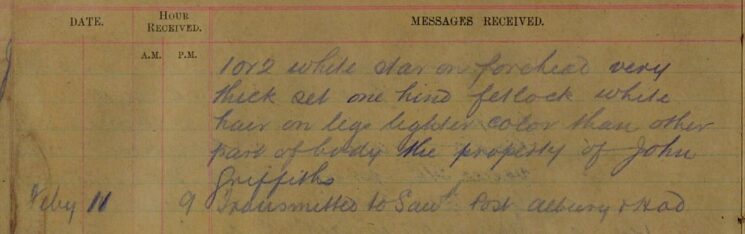 DATE. HOUR RECEIVED. MESSAGES RECEIVED.
A.M. P.M.
1 or 2 white star on forehead very
thick set one hind fetlock white
hair on legs lighter color than other
part of body the property of John
Griffiths
Feby 11 9 Transmitted to Post Albury & Had